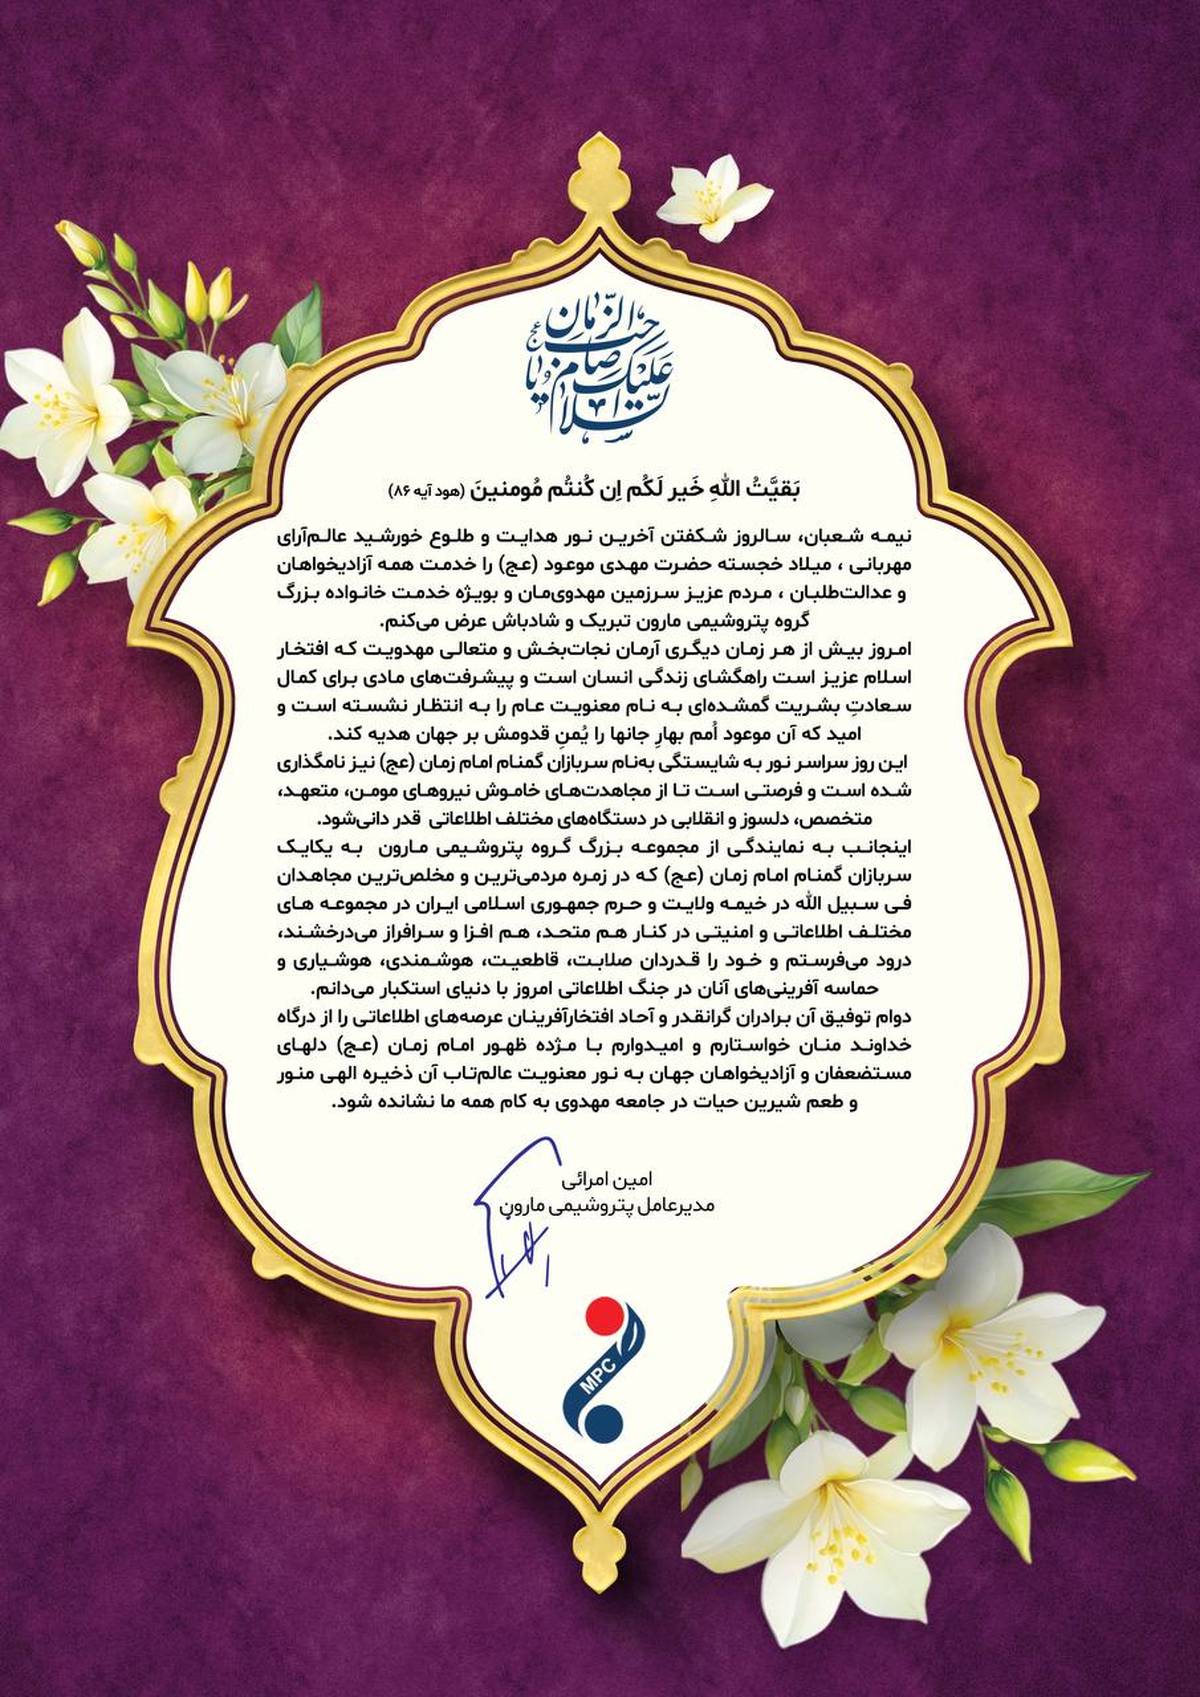 السلام علیک یا صاحب الزمان عج
بَقیَّتُ اللهِ خَیر لَکُم اِن کُنتُم مُومنینَ (هود آیه ۸۶)
نیمه شعبان، سالروز شکفتن آخرین نور هدایت و طلوع خورشید عالم‌آرای
مهربانی ، میلاد خجسته حضرت مهدی موعود (عج) را خدمت همه آزادیخواهان
و عدالت‌طلبان ، مردم عزیز سرزمین مهدوی‌مان و بویژه خدمت خانواده بزرگ
گروه پتروشیمی مارون تبریک و شادباش عرض می‌کنم.
امروز بیش از هر زمان دیگری آرمان نجات‌بخش و متعالی مهدویت که افتخار
اسلام عزیز است راهگشای زندگی انسان است و پیشرفت‌های مادی برای کمال
سعادتِ بشریت گمشده‌ای به نام معنویت عام را به انتظار نشسته است و
امید که آن موعود اُمم بهارِ جانها را یُمنِ قدومش بر جهان هدیه کند.
این روز سراسر نور به شایستگی به‌نام سربازان گمنام امام زمان (عج) نیز نامگذاری
شده است و فرصتی است تا از مجاهدت‌های خاموش نیروهای مومن، متعهد،
متخصص، دلسوز و انقلابی در دستگاه‌های مختلف اطلاعاتی قدر دانی‌شود.
اینجانب به نمایندگی از مجموعه بزرگ گروه پتروشیمی مارون به یکایک
سربازان گمنام امام زمان (عج) که در زمره مردمی‌ترین و مخلص‌ترین مجاهدان
فی سبیل الله در خیمه ولایت و حرم جمهوری اسلامی ایران در مجموعه های
مختلف اطلاعاتی و امنیتی در کنار هم متحد، هم افزا و سرافراز می‌درخشند،
درود می‌فرستم و خود را قدردان صلابت، قاطعیت، هوشمندی، هوشیاری و
حماسه آفرینی‌های آنان در جنگ اطلاعاتی امروز با دنیای استکبار می‌دانم.
دوام توفیق آن برادران گرانقدر و آحاد افتخارآفرینان عرصه‌های اطلاعاتی را از درگاه
خداوند منان خواستارم و امیدوارم با مژده ظهور امام زمان (عج) دلهای
مستضعفان و آزادیخواهان جهان به نور معنویت عالم‌تاب آن ذخیره الهی منور
و طعم شیرین حیات در جامعه مهدوی به کام همه ما نشانده شود.
امین امرائی
مدیرعامل پتروشیمی مارون
MPC